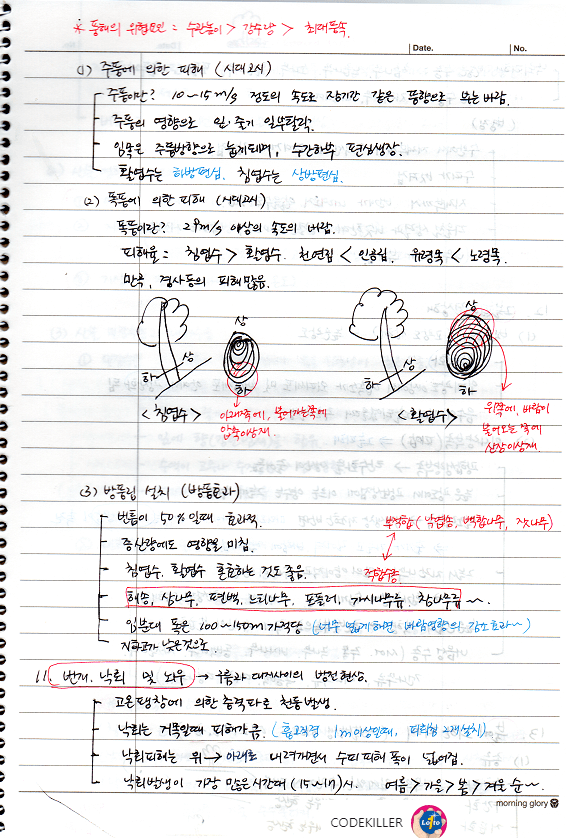 * 풍해의 위험요인 = 수관높이 > 강수량 > 최대풍속
Date. No.
(1) 주풍에 의한 피해 (시대고시)
주풍이란? 10~15m/s 정도의 속도로 장기간 같은 풍향으로 부는 바람.
주풍의 영향으로 잎·줄기 일부탈락.
임목은 주풍방향으로 눕게되며, 수간하부 편심생장.
활엽수는 하방편심. 침엽수는 상방편심.
(2) 폭풍에 의한 피해 (시대고시)
폭풍이란? 29m/s 이상의 속도의 바람.
피해율 = 침엽수 > 활엽수. 천연림 < 인공림. 유령목 < 노령목.
만곡, 경사등의 피해많음.
상 상
상 상
하 하 하 하
<침엽수> 아래쪽에, 불어가는쪽에 압축이상재.
<활엽수> 위쪽에, 바람이 불어오는 쪽에 신장이상재.
(3) 방풍림 설치 (방풍효과)
변틈이 50%일때 효과적. 부적합 (낙엽송, 백합나무, 잣나무)
증산량에도 영향을 미침.
침엽수, 활엽수 혼효하는 것도 좋음. 적합수종
해송, 삼나무, 편백, 느티나무, 포플러, 가시나무류, 참나무류~.
임분대 폭은 100~150m 가 적당 (너무 넓게하면 바람영향의 감소효과~)
지하고가 낮은것으로.
11. 번개. 낙뢰 및 뇌우 → 구름과 대지사이의 방전현상.
고온팽창에 의한 충격파로 천둥발생.
낙뢰는 거목일때 피해가큼. (흉고직경 1m이상일때, 피뢰침 2개설치)
낙뢰피해는 위 → 아래로 내려가면서 수피피해 폭이 넓어짐.
낙뢰발생이 가장 많은시간대 (15~17)시. 여름 > 가을 > 봄 > 겨울 순~.
morning glory
CODEKILLER
Lotto